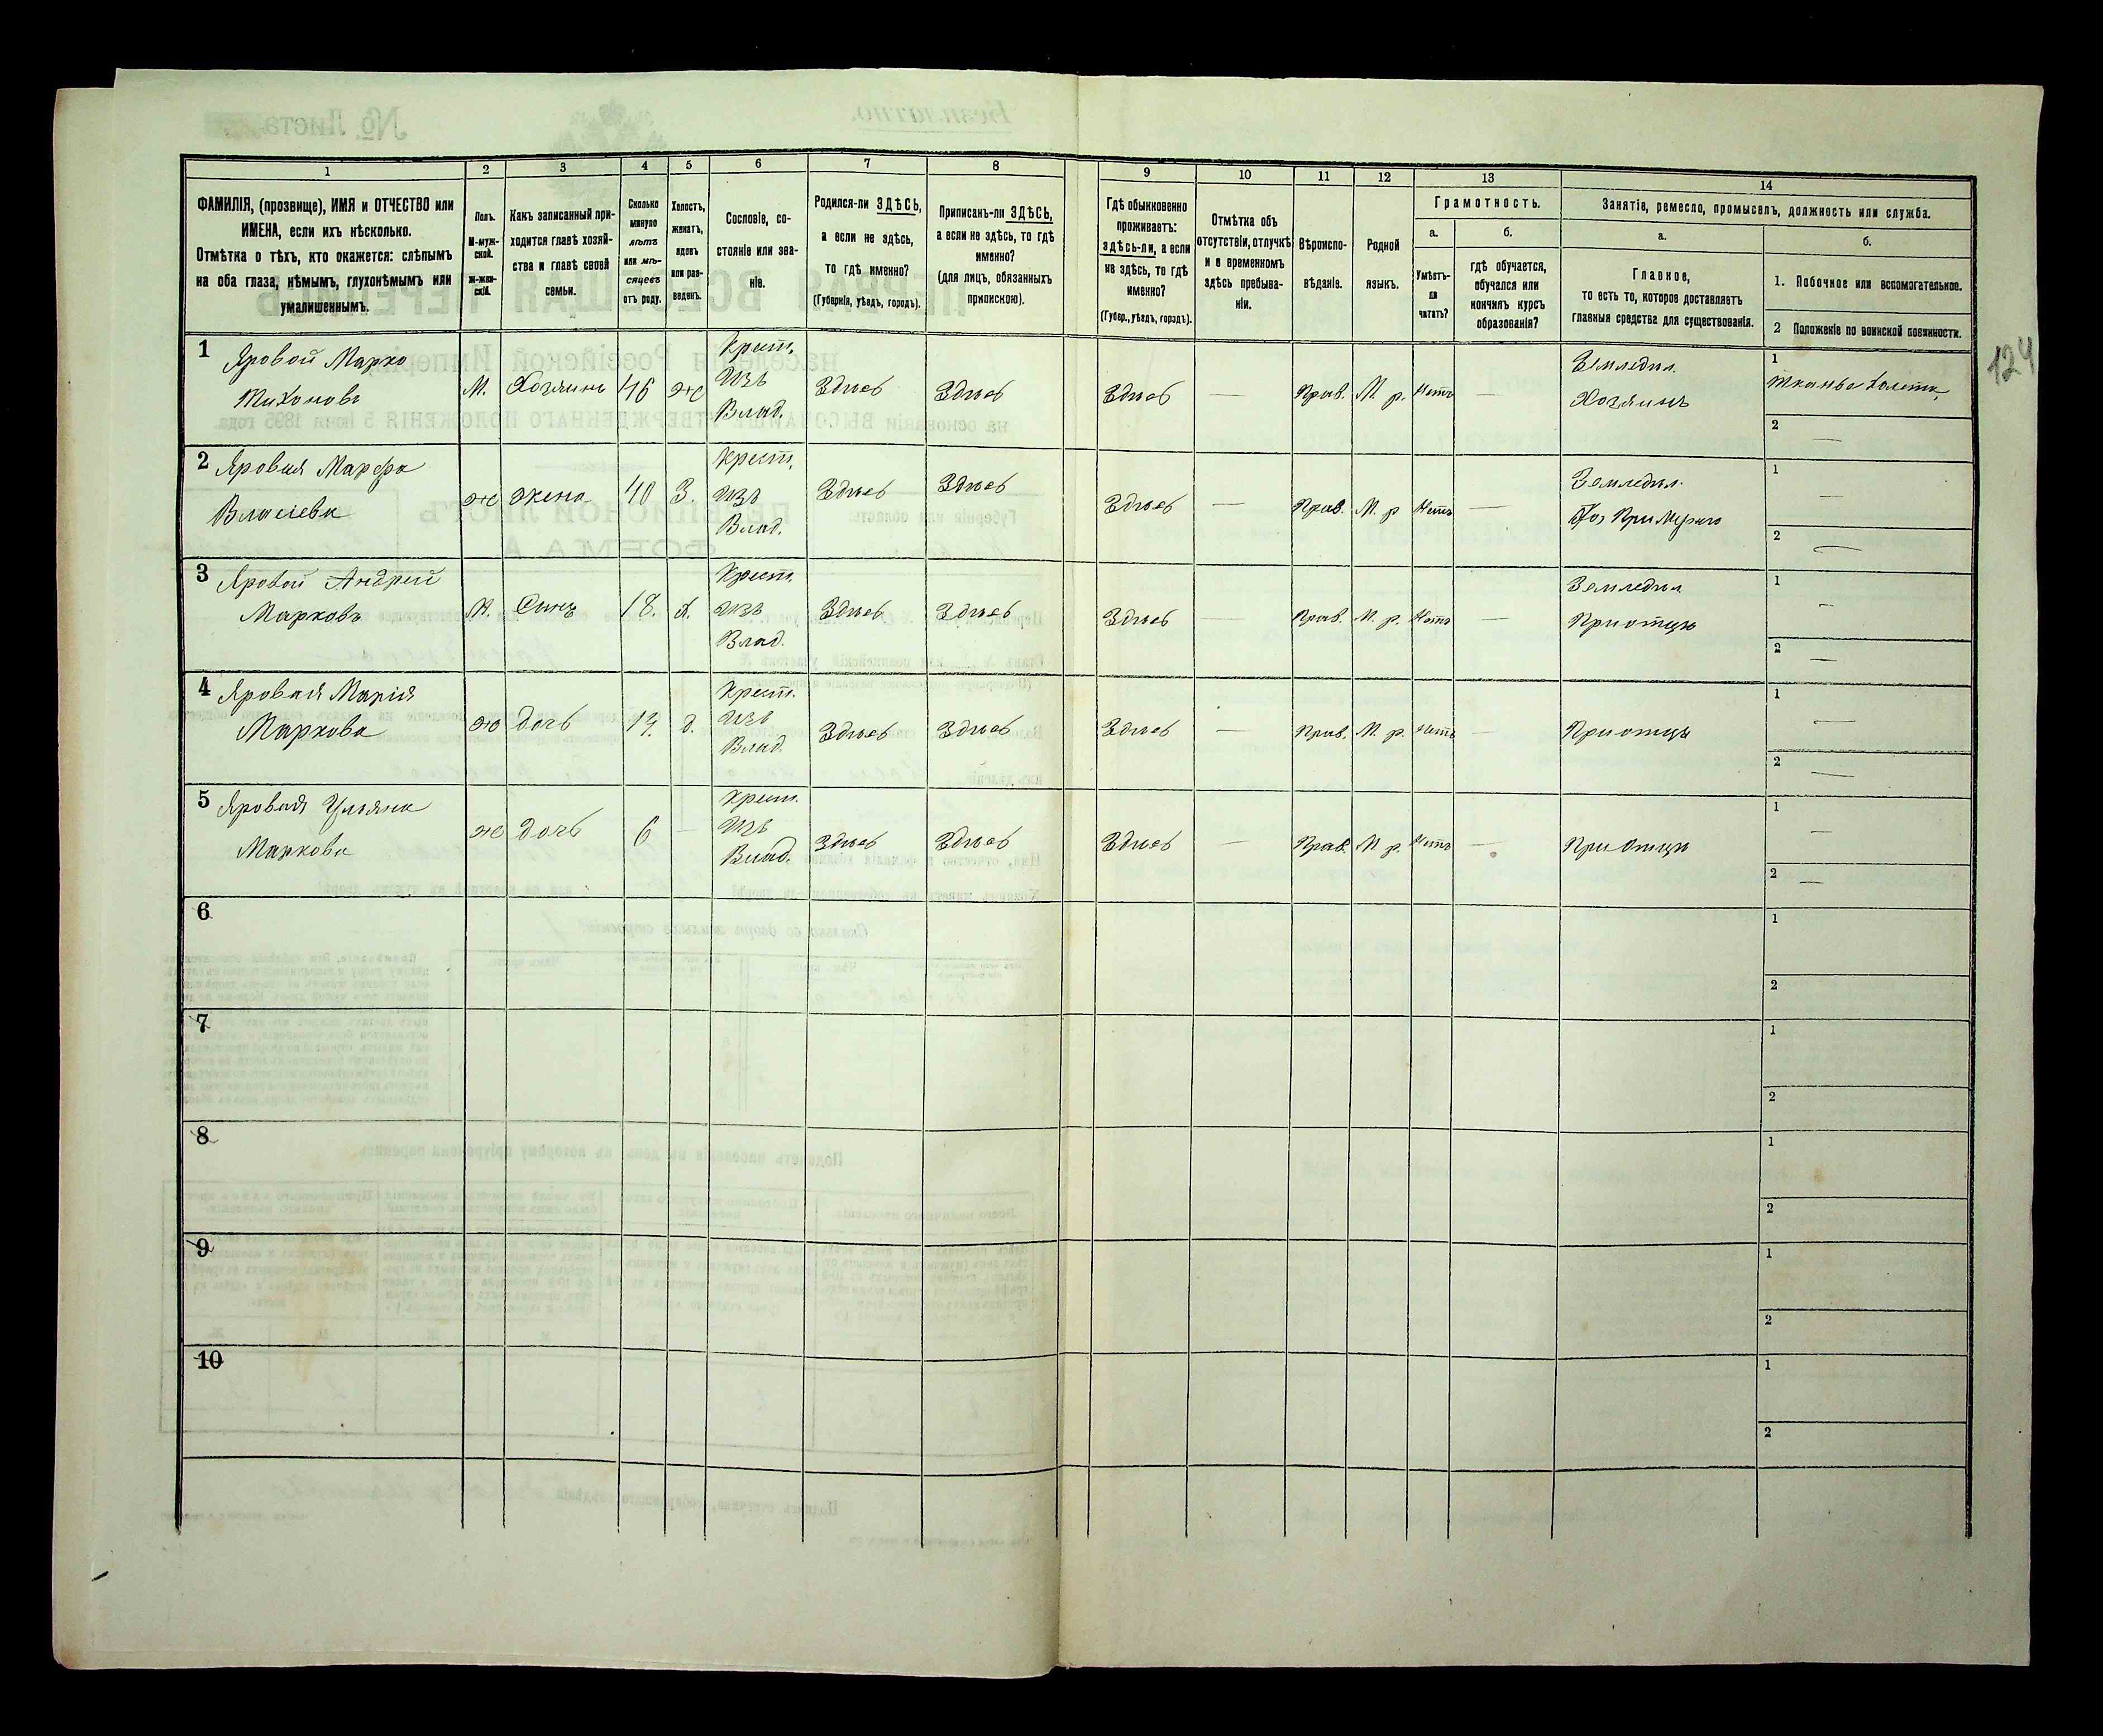 1 2 3 4 5 6 7 8 9 10 11 12 13 14
ФАМИЛІЯ, (прозвище), ИМЯ и ОТЧЕСТВО или ИМЕНА, если ихъ нѣсколько.
Отмѣтка о тѣхъ, кто окажется: слѣпымъ на оба глаза, нѣмымъ, глухонѣмымъ или умалишеннымъ.
Полъ. М-мужской. Ж-женскій.
Какъ записанный приходится главѣ хозяйства и главѣ своей семьи.
Сколько минуло лѣтъ или мѣсяцевъ отъ роду.
Холостъ, женатъ, вдовъ или разведенъ.
Сословіе, состояніе или званіе.
Родился-ли ЗДѢСЬ, а если не здѣсь, то гдѣ именно?
(Губернія, уѣздъ, городъ).
Приписанъ-ли ЗДѢСЬ, а если не здѣсь, то гдѣ именно?
(для лицъ, обязанныхъ припискою).
Гдѣ обыкновенно проживаетъ: здѣсь-ли, а если не здѣсь, то гдѣ именно?
(Губер., уѣздъ, городъ).
Отмѣтка объ отсутствіи, отлучкѣ и о временномъ здѣсь пребываніи.
Вѣроисповѣданіе.
Родной языкъ.
Грамотность.
а. Умѣетъ-ли читать?
б. гдѣ обучается, обучался или кончилъ курсъ образованія?
Занятіе, ремесло, промыселъ, должность или служба.
а. Главное, то есть то, которое доставляетъ главныя средства для существованія.
б.
1. Побочное или вспомогательное.
2 Положеніе по воинской повинности.
124
1 Яровой Марко Тихоновъ М. Хозяинъ 46 ж Крест. Изъ Влад. Здѣсь Здѣсь Здѣсь — Прав. М. р. Нетъ — Земледѣл. Хозяинъ 1 тканье холста 2 —
2 Яровая Марфа Власіева ж жена 40 З. Крест. Изъ Влад. Здѣсь Здѣсь Здѣсь — Прав. М. р Нетъ — Земледѣл. При Мужѣ 1 — 2 —
3 Яровой Андрей Марковъ М. Сынъ 18. х. Крест. Изъ Влад. Здѣсь Здѣсь Здѣсь — Прав. М. р. Нетъ — Земледѣл При отцѣ 1 — 2 —
4 Яровая Марія Маркова ж дочь д. Крест. Изъ Влад. Здѣсь Здѣсь Здѣсь — Прав. М. р. Нетъ — При отцѣ 1 — 2 —
5 Яровая Ульяна Маркова ж дочь 6 — Крест. Изъ Влад. Здѣсь Здѣсь Здѣсь — Прав. М р. Нетъ — При отцѣ 1 — 2 —
6 1 2
7 1 2
8 1 2
9 1 2
10 1 2